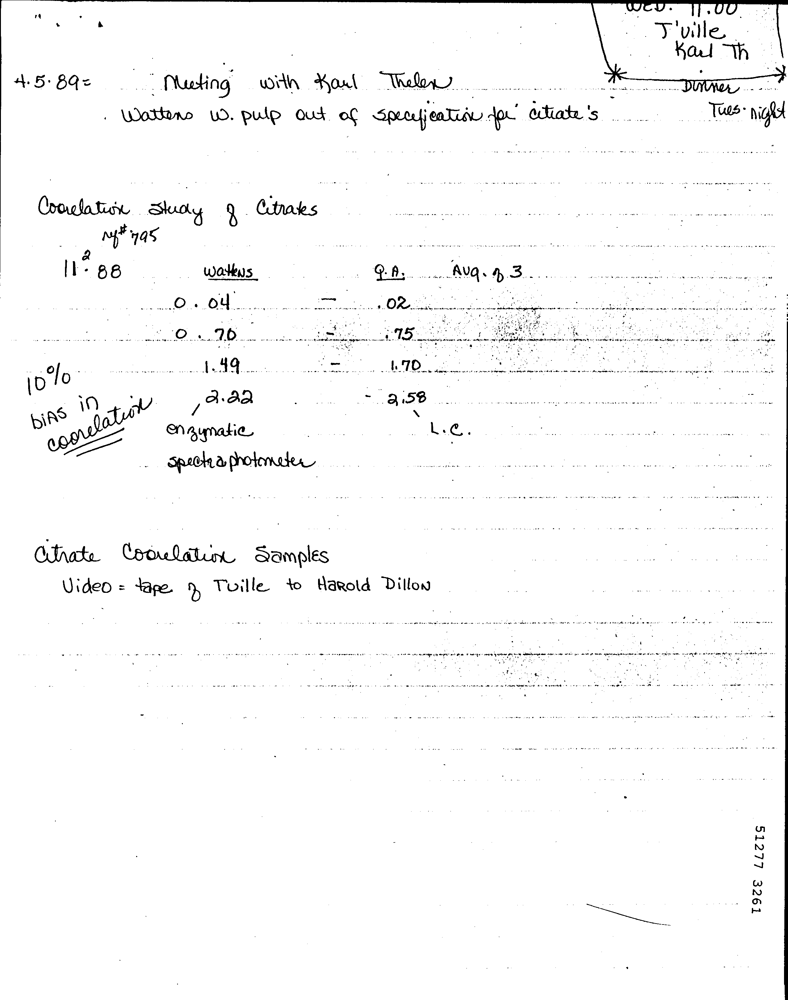 WED. 11.00
J'ville
Karl Th
Dinner
Tues. night
4.5.89= Meeting with Karl Thelen
Wattens W. pulp out of specification for citrate's
Coorelation Study of Citrates
11.2.88 Wattens Q.A. Avg. of 3
0.04 - .02
0.70 - .75
1.49 - 1.70
2.22 - 2.58
10%
biAS in
coorelation
enzymatic
spectraphotometer
L.C.
Citrate Coorelation Samples
Video = tape of Tville to Harold Dillon
51277 3261